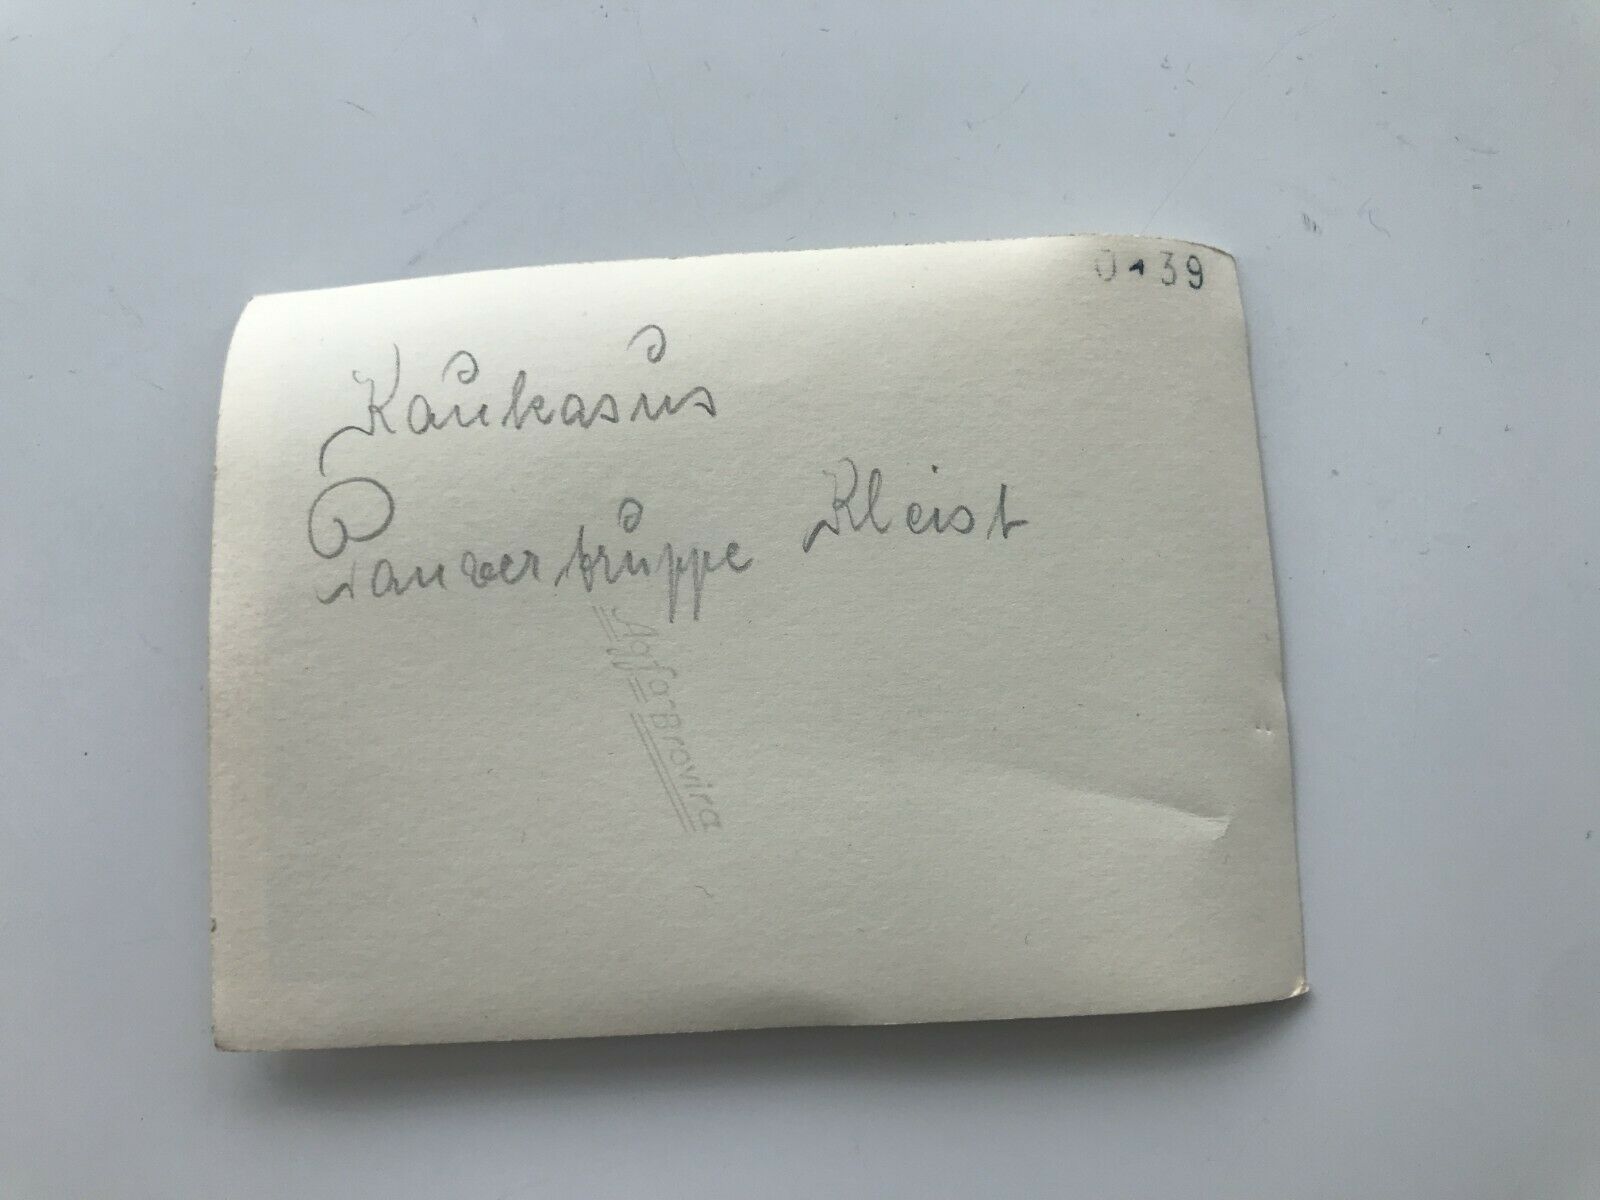 39
Kaukasus
Panzertruppe Kleist
Agfa-Brovira